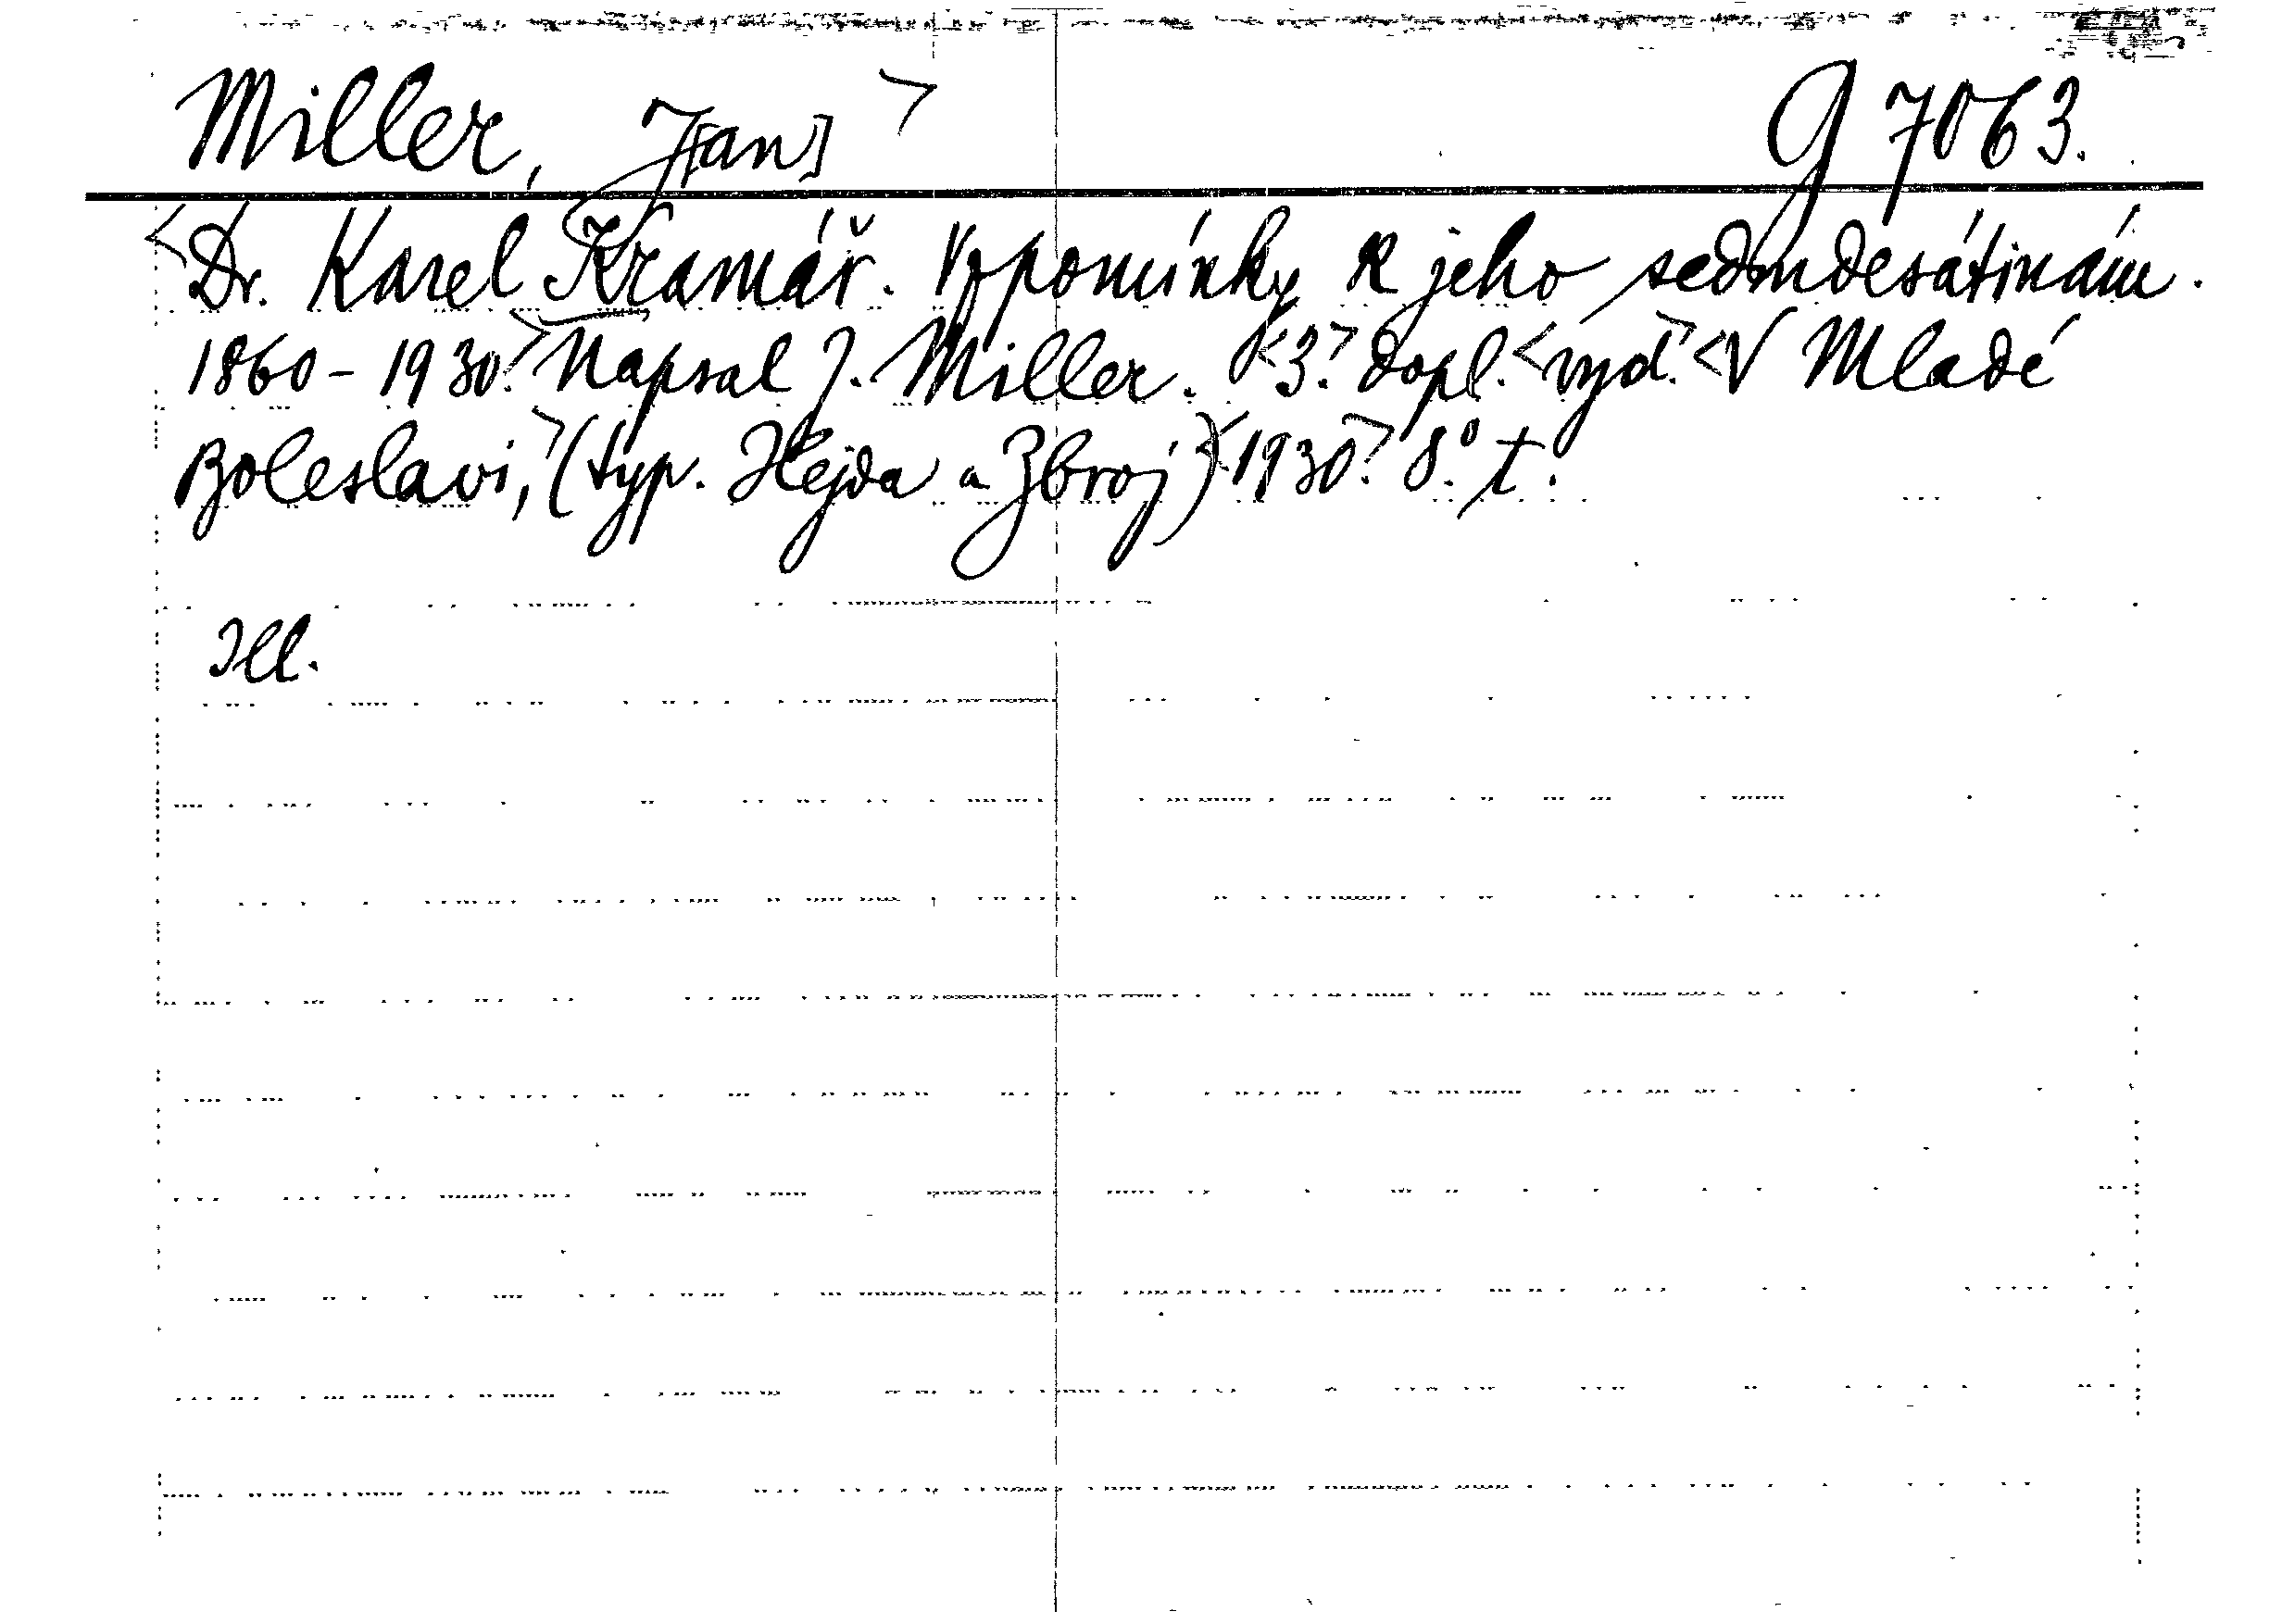 Miller, J[an] > g 7063.
<Dr. Karel Kramář. Vzpomínky k jeho sedmdesátinám.
1860-1930.> Napsal J. Miller. <3.> dopl. <vyd.> <V Mladé
Boleslavi,> (typ. Hejda a Zbroj) <1930.> 8° t.
Ill.